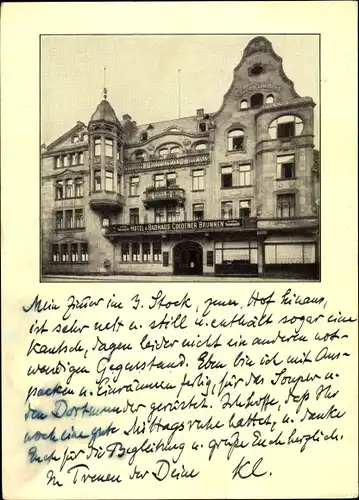 HOTEL u. BADHAUS GOLDENER BRUNNEN
Mein Zimmer im 3. Stock, zum Hof hinaus,
ist sehr nett u. still u. enthält sogar eine
Kautsch, dagegen leider nicht einen anderen not-
wendigen Gegenstand. Eben bin ich mit Aus-
packen u. Einräumen fertig, für das Souper u.
den Dortmunder gerüstet. Ich hoffe, daß Ihr
noch eine gute Mittagsruhe hattet, u. danke
Euch für die Begleitung u. grüße Euch herzlich.
In Treuen der Deine Kl.